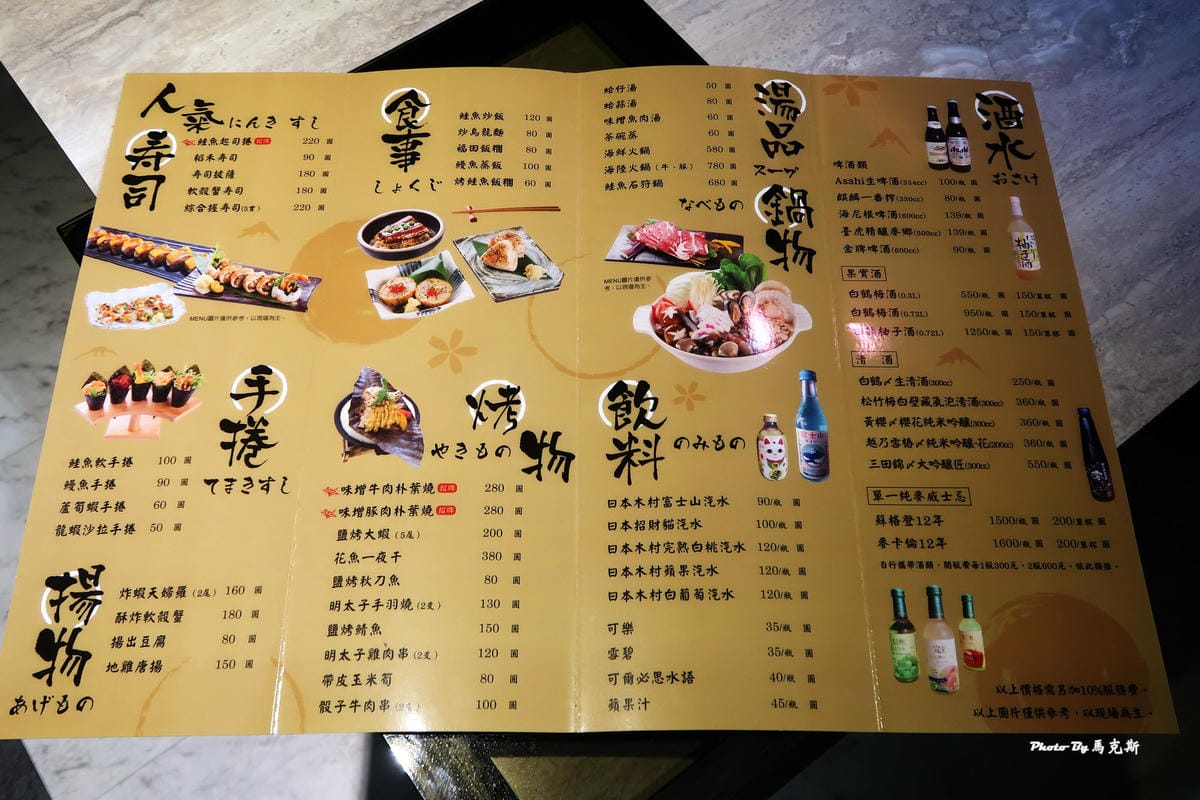 人氣
壽司
にんき すし
鮭魚起司捲 招牌 220 圓
稻禾寿司 90 圓
寿司披薩 180 圓
軟殼蟹寿司 180 圓
綜合握寿司(5貫) 220 圓
MENU圖片僅供參考，以現場為主。
手捲
てまきすし
鮭魚軟手捲 100 圓
鰻魚手捲 90 圓
蘆筍蝦手捲 60 圓
龍蝦沙拉手捲 50 圓
揚物
あげもの
炸蝦天婦羅(2尾) 160 圓
酥炸軟殼蟹 180 圓
揚出豆腐 80 圓
地雞唐揚 150 圓
食事
しょくじ
鮭魚炒飯 120 圓
炒烏龍麵 80 圓
福田飯糰 80 圓
鰻魚蒸飯 100 圓
烤鮭魚飯糰 60 圓
烤物
やきもの
味增牛肉朴葉燒 招牌 280 圓
味增豚肉朴葉燒 招牌 280 圓
鹽烤大蝦(5尾) 200 圓
花魚一夜干 380 圓
鹽烤秋刀魚 80 圓
明太子手羽燒(2支) 130 圓
鹽烤鯖魚 150 圓
明太子雞肉串(2支) 120 圓
帶皮玉米筍 80 圓
骰子牛肉串(2支) 100 圓
湯品
スープ
鍋物
なべもの
蛤仔湯 50 圓
蛤蒜湯 80 圓
味增魚肉湯 60 圓
茶碗蒸 60 圓
海鮮火鍋 580 圓
海陸火鍋(牛·豚) 780 圓
鮭魚石狩鍋 680 圓
MENU圖片僅供參
考，以現場為主。
飲料
のみもの
日本木村富士山汽水 90/瓶 圓
日本招財貓汽水 100/瓶 圓
日本木村完熟白桃汽水 120/瓶 圓
日本木村蘋果汽水 120/瓶 圓
日本木村白葡萄汽水 120/瓶 圓
可樂 35/瓶 圓
雪碧 35/瓶 圓
可爾必思水語 40/瓶 圓
蘋果汁 45/瓶 圓
酒水
おさけ
啤酒類
Asahi生啤酒(334cc) 100/瓶 圓
麒麟一番搾(330cc) 80/瓶 圓
海尼根啤酒(600cc) 139/瓶 圓
臺虎精釀麥鄉(500cc) 139/瓶 圓
金牌啤酒(600cc) 90/瓶 圓
果實酒
白鶴梅酒(0.3L) 550/瓶 圓 150/單杯 圓
白鶴梅酒(0.72L) 950/瓶 圓 150/單杯 圓
柚子酒(0.72L) 1250/瓶 圓 150/單杯 圓
清 酒
白鶴〆生清酒(300cc) 250/瓶 圓
松竹梅白壁藏氣泡清酒(300cc) 360/瓶 圓
黃櫻〆櫻花純米吟釀(300cc) 360/瓶 圓
越乃雪椿〆純米吟釀-花(200cc) 360/瓶 圓
三田錦〆大吟釀匠(300cc) 550/瓶 圓
單一純麥威士忌
蘇格登12年 1500/瓶 圓 200/單杯 圓
麥卡倫12年 1600/瓶 圓 200/單杯 圓
自行攜帶酒類，開瓶費每1瓶300元，2瓶600元，依此類推。
以上價格需另加10%服務費。
以上圖片僅供參考，以現場為主。
Photo By 馬克斯